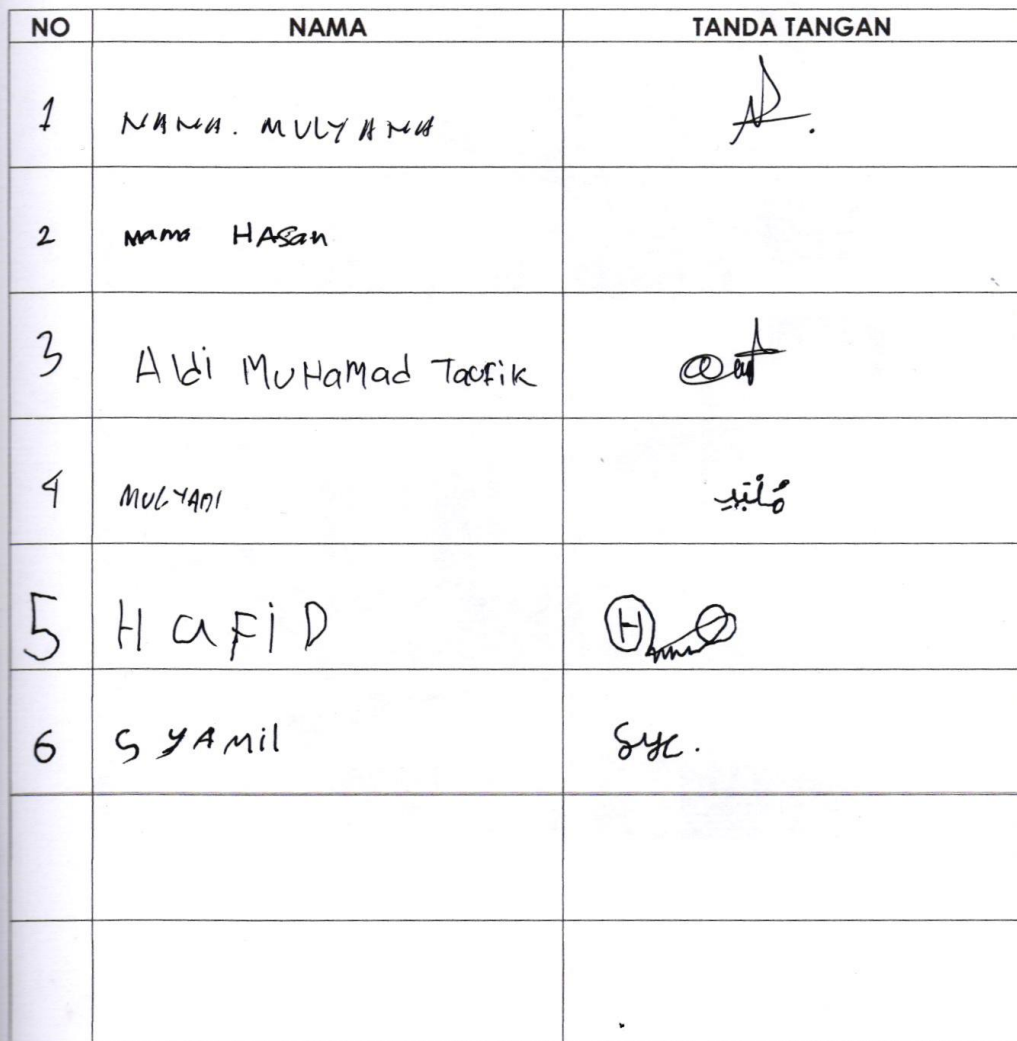 NO NAMA TANDA TANGAN
1 NANA. MULYANA
2 Mama HASan
3 Aldi MuHaMad Taufik
4 MULYADI
5 HaFiD
6 SYAMil Syc.